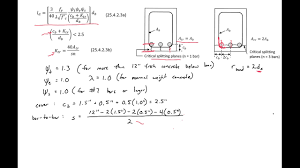 l_d = [3/40 f_y/(λ√f'_c) ψ_tψ_eψ_s/((c_b + K_tr)/d_b)] d_b (25.4.2.3a)
(c_b + K_tr)/d_b < 2.5
K_tr = 40A_tr/sn (25.4.2.3b)
Critical splitting
planes (n = 1 bar)
Critical splitting
planes (n = 4 bars)
ψ_t = 1.3 (for more than 12" fresh concrete below bar)
ψ_e = 1.0 λ = 1.0 (for normal weight concrete)
ψ_s = 1.0 (for #7 bars or larger)
cover: c_b = 1.5" + 0.5" + 0.5(1.0") = 2.5"
bar-to-bar: s = (12" - 2(1.5") - 2(0.5") - 4(0.5"))/2